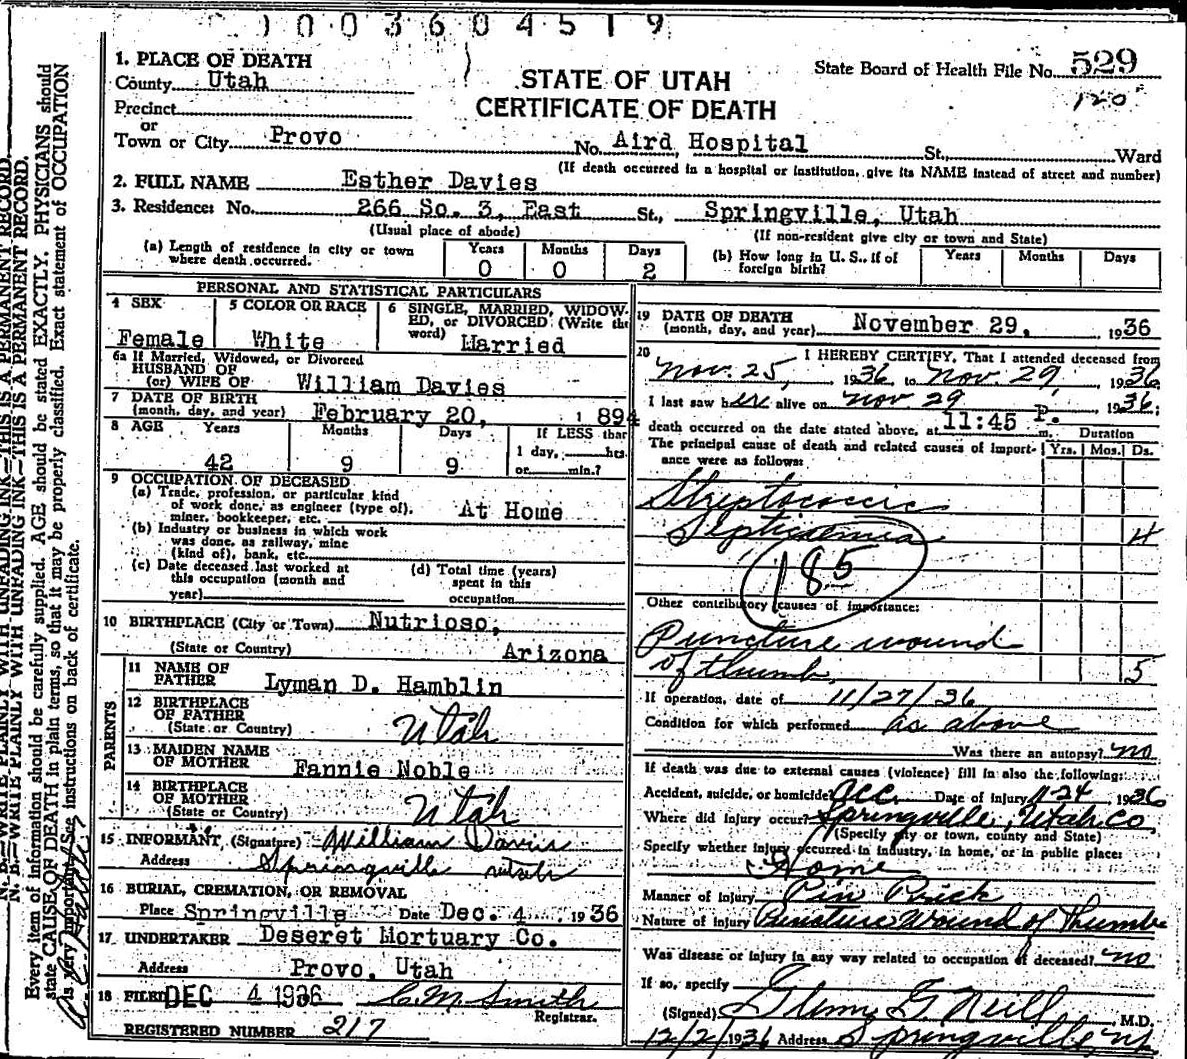 1003604519
1. PLACE OF DEATH
County Utah
STATE OF UTAH
CERTIFICATE OF DEATH
State Board of Health File No. 529
120
Precinct
or
Town or City Provo No. Aird Hospital St., Ward
(If death occurred in a hospital or institution, give its NAME instead of street and number)
2. FULL NAME Esther Davies
3. Residence: No. 266 So. 3, East St., Springville, Utah
(Usual place of abode) (If non-resident give city or town and State)
(a) Length of residence in city or town where death occurred. Years 0 Months 0 Days 2
(b) How long in U. S., if of foreign birth? Years Months Days
PERSONAL AND STATISTICAL PARTICULARS
4 SEX Female
5 COLOR OR RACE White
6 SINGLE, MARRIED, WIDOWED, or DIVORCED (Write the word) Married
6a If Married, Widowed, or Divorced
HUSBAND OF
(or) WIFE OF William Davies
7 DATE OF BIRTH
(month, day, and year) February 20, 1894
8 AGE Years 42 Months 9 Days 9 If LESS than 1 day, hrs. or min.?
9 OCCUPATION OF DECEASED
(a) Trade, profession, or particular kind
of work done, as engineer (type of),
miner, bookkeeper, etc. At Home
(b) Industry or business in which work
was done, as railway, mine
(kind of), bank, etc.
(c) Date deceased last worked at
this occupation (month and
year)
(d) Total time (years)
spent in this
occupation
10 BIRTHPLACE (City or Town) Nutrioso,
(State or Country) Arizona
PARENTS
11 NAME OF
FATHER Lyman D. Hamblin
12 BIRTHPLACE
OF FATHER
(State or Country) Utah
13 MAIDEN NAME
OF MOTHER Fannie Noble
14 BIRTHPLACE
OF MOTHER
(State or Country) Utah
15 INFORMANT (Signature) William Davis
Address Springville Utah
16 BURIAL, CREMATION, OR REMOVAL
Place Springville Date Dec. 4 1936
17 UNDERTAKER Deseret Mortuary Co.
Address Provo, Utah
18 FILED DEC 4 1936 C.M. Smith
Registrar.
REGISTERED NUMBER 217
19 DATE OF DEATH
(month, day, and year) November 29, 1936
20 I HEREBY CERTIFY, That I attended deceased from
Nov. 25, 1936, to Nov. 29, 1936
I last saw her alive on Nov 29 1936;
death occurred on the date stated above, at 11:45 P. m.
The principal cause of death and related causes of importance were as follows: Duration Yrs. Mos. Ds.
Streptococcic
Septicemia 4
185
Other contributory causes of importance:
Puncture wound
of thumb, 5
If operation, date of 11/27/36
Condition for which performed as above
Was there an autopsy? no
If death was due to external causes (violence) fill in also the following:
Accident, suicide, or homicide? acc. Date of injury 11-24 1936
Where did injury occur? Springville, Utah Co
(Specify city or town, county and State)
Specify whether injury occurred in industry, in home, or in public place:
Home
Manner of injury Pin Prick
Nature of injury Puncture Wound of Thumb
Was disease or injury in any way related to occupation of deceased? no
If so, specify
(Signed) Glenn G. Neill M.D.
12/2/1936 Address Springville, Ut
N. B.—WRITE PLAINLY WITH UNFADING INK—THIS IS A PERMANENT RECORD.
N. B.—WRITE PLAINLY WITH UNFADING INK—THIS IS A PERMANENT RECORD.
Every item of information should be carefully supplied. AGE should be stated EXACTLY. PHYSICIANS should
state CAUSE OF DEATH in plain terms, so that it may be properly classified. Exact statement of OCCUPATION
is very important. See instructions on back of certificate.